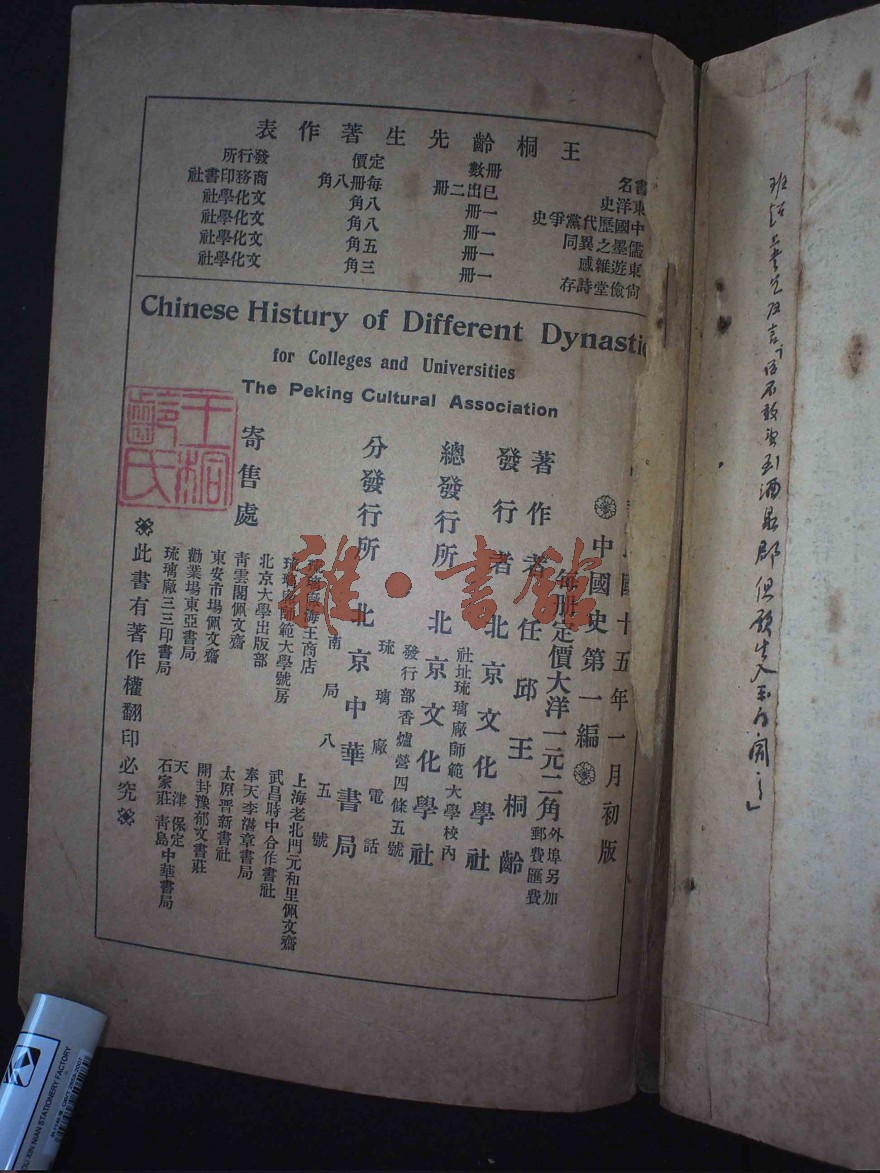 王桐齡先生著作表
書名 冊數 定價 發行所
東洋史 已出二冊 每冊八角 商務印書社
中國歷代黨爭史 一冊 八角 文化學社
儒墨之異同 一冊 八角 文化學社
東遊雜感 一冊 五角 文化學社
尙儉堂詩存 一冊 三角 文化學社
Chinese Histury of Different Dynastic
for Colleges and Universities
The Peking Cultural Association
國十五年一月初版
中國史第一編
每册定價大洋一元二角 外埠另加郵費匯費
著作者 任邱王桐齡
發行者 北京文化學社
社址琉璃廠師範大學校內
總發行所 北京文化學社
發行部香爐營四條五號
琉璃廠電話
分發行所 北京中華書局
南局八五號
寄售處
琉璃廠海王商店
琉璃廠師範大學號房
北京大學出版部
靑雲閣佩文齋
東安市場佩文齋
勸業場東亞書局
琉璃廠三三印書局
上海老北門元和里佩文齋
武昌時中合作書社
奉天李湛章書局
太原晋新書社
開封豫郁文書莊
天津 保定 石家莊 靑島 中華書局
此書有著作權翻印必究
王桐齡氏
班超上書
言
不敢望到酒泉郡但願生入玉門關」
雜·書館
XIN NIAN STATIONERY FACTORY